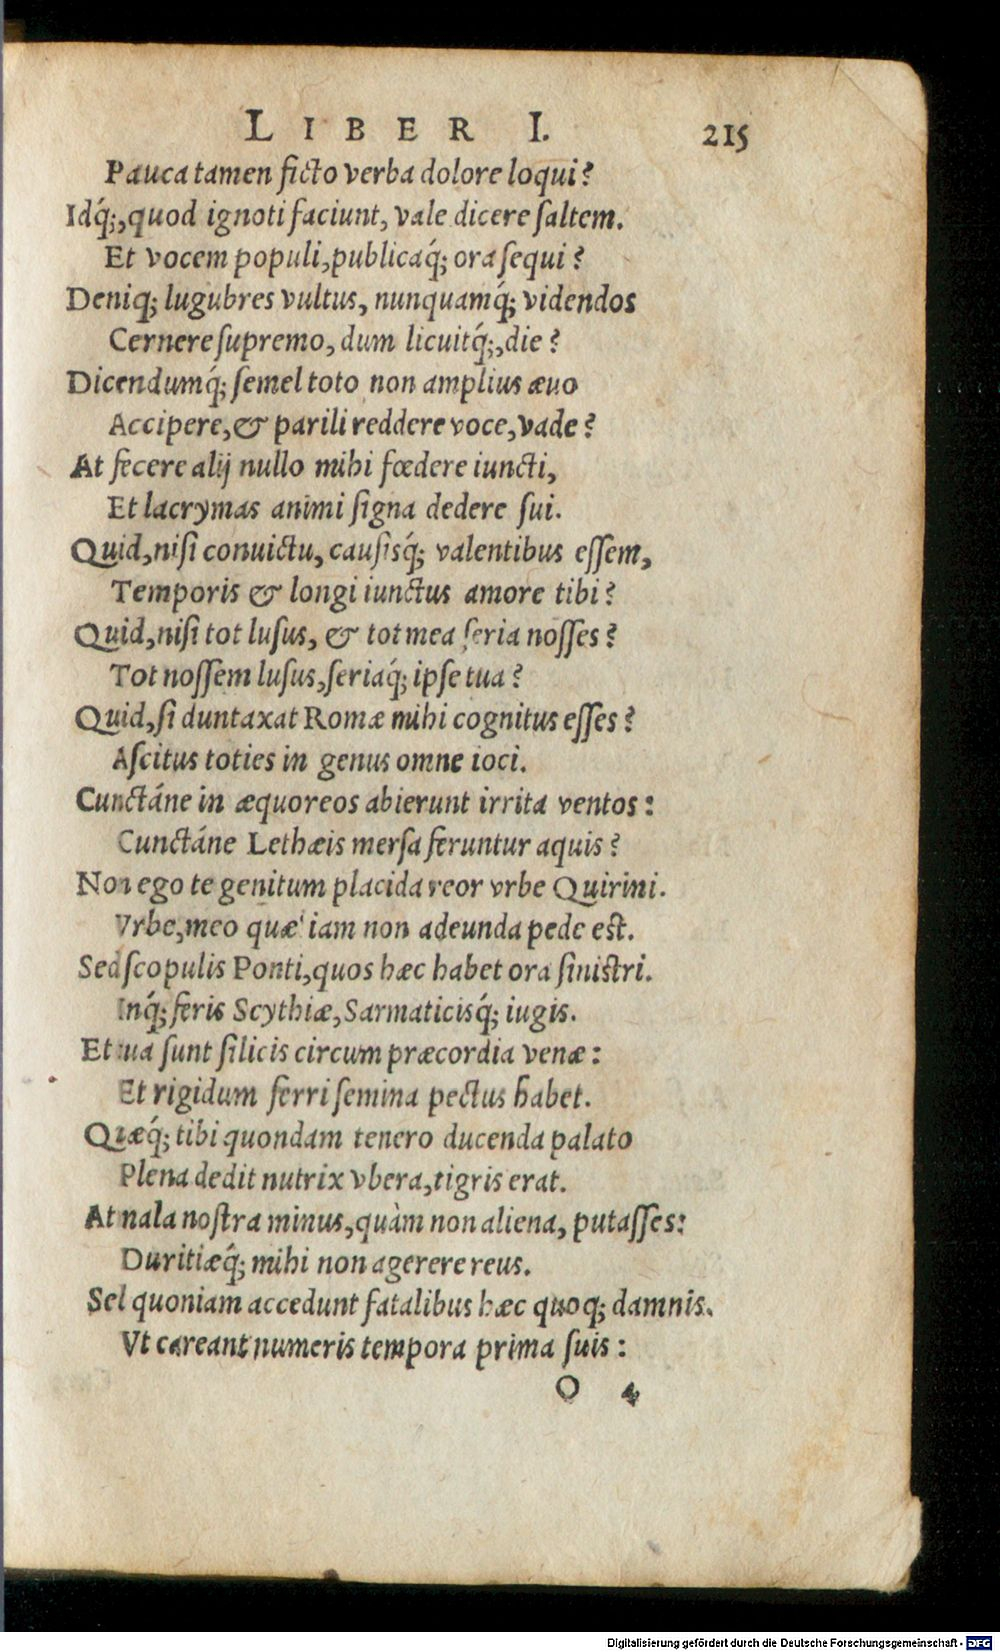 LIBER I. 215
Pauca tamen ficto verba dolore loqui?
Idq́;, quod ignoti faciunt, vale dicere saltem.
Et vocem populi, publicaq́; ora sequi?
Deniq; lugubres vultus, nunquamq́; videndos
Cernere supremo, dum licuitq́;, die?
Dicendumq́; semel toto non amplius æuo
Accipere, & parili reddere voce, vade?
At fecere alij nullo mihi fœdere iuncti,
Et lacrymas animi signa dedere sui.
Quid, nisi conuictu, causisq́; valentibus essem,
Temporis & longi iunctus amore tibi?
Quid, nisi tot lusus, & tot mea seria nosses?
Tot nossem lusus, seriaq́; ipse tua?
Quid, si duntaxat Romæ mihi cognitus esses?
Ascitus toties in genus omne ioci.
Cunctáne in æquoreos abierunt irrita ventos:
Cunctáne Lethæis mersa feruntur aquis?
Non ego te genitum placida reor vrbe Quirini.
Vrbe, meo quæ iam non adeunda pede est.
Sed scopulis Ponti, quos hæc habet ora sinistri.
Inq́; feris Scythiæ, Sarmaticisq́; iugis.
Et tua sunt silicis circum præcordia venæ:
Et rigidum ferri semina pectus habet.
Quæq́; tibi quondam tenero ducenda palato
Plena dedit nutrix vbera, tigris erat.
At mala nostra minus, quàm non aliena, putasses:
Duritiæq́; mihi non agerere reus.
Sed quoniam accedunt fatalibus hæc quoq; damnis.
Vt careant numeris tempora prima suis:
O 4
Digitalisierung gefördert durch die Deutsche Forschungsgemeinschaft - DFG